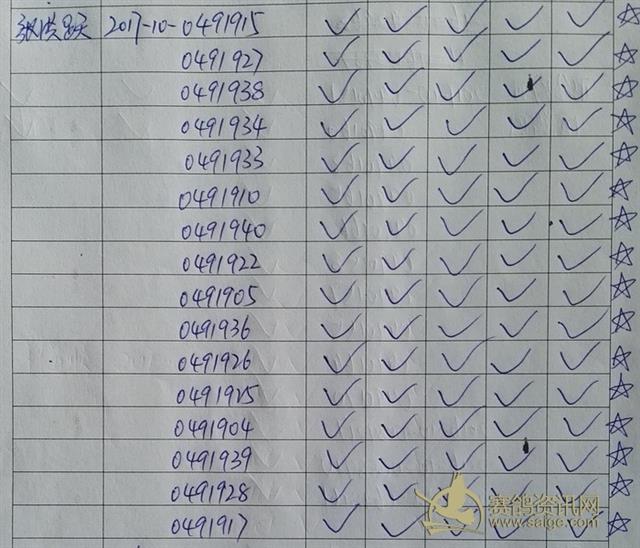 张洪跃 2017-10-0491915 ✓ ✓ ✓ ✓ ✓ ☆
0491927 ✓ ✓ ✓ ✓ ✓ ☆
0491938 ✓ ✓ ✓ ✓ ✓ ☆
0491934 ✓ ✓ ✓ ✓ ✓ ☆
0491933 ✓ ✓ ✓ ✓ ✓ ☆
0491910 ✓ ✓ ✓ ✓ ✓ ☆
0491940 ✓ ✓ ✓ ✓ ✓ ☆
0491922 ✓ ✓ ✓ ✓ ✓ ☆
0491905 ✓ ✓ ✓ ✓ ✓ ☆
0491936 ✓ ✓ ✓ ✓ ✓ ☆
0491926 ✓ ✓ ✓ ✓ ✓ ☆
0491925 ✓ ✓ ✓ ✓ ✓ ☆
0491904 ✓ ✓ ✓ ✓ ✓ ☆
0491939 ✓ ✓ ✓ ✓ ✓ ☆
0491928 ✓ ✓ ✓ ✓ ✓ ☆
0491917 ✓ ✓ ✓ ✓ ✓ ☆
赛鸽资讯网
www.saige.com